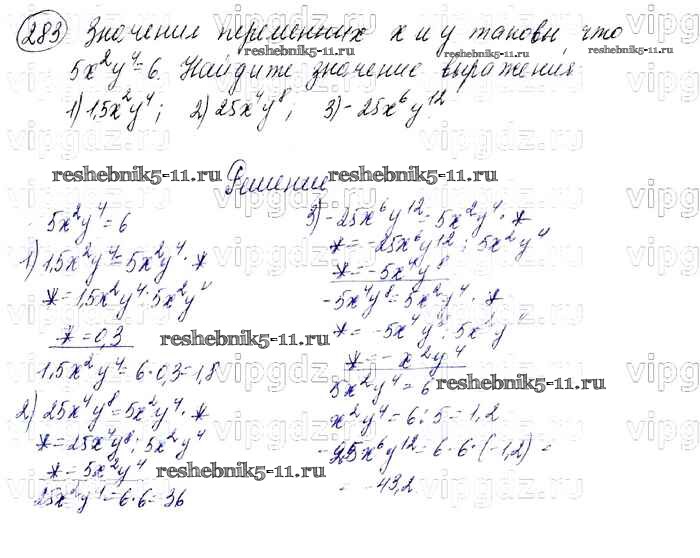 283 Значения переменных x и y таковы, что
5x²y⁴=6. Найдите значение выражения
1) 1,5x²y⁴; 2) 25x⁴y⁸; 3) -25x⁶y¹²
reshebnik5-11.ru
Решение
5x²y⁴=6
1) 1,5x²y⁴=5x²y⁴·*
*=1,5x²y⁴:5x²y⁴
*=0,3
1,5x²y⁴=6·0,3=1,8
2) 25x⁴y⁸=5x²y⁴·*
*=25x⁴y⁸:5x²y⁴
*=5x²y⁴
25x⁴y⁸=6·6=36
3) -25x⁶y¹²=5x²y⁴·*
*=-25x⁶y¹²:5x²y⁴
*=-5x⁴y⁸
-5x⁴y⁸=5x²y⁴·*
*=-5x⁴y⁸:5x²y⁴
*=-x²y⁴
5x²y⁴=6
x²y⁴=6:5=1,2
-25x⁶y¹²=6·6·(-1,2)=
=-43,2